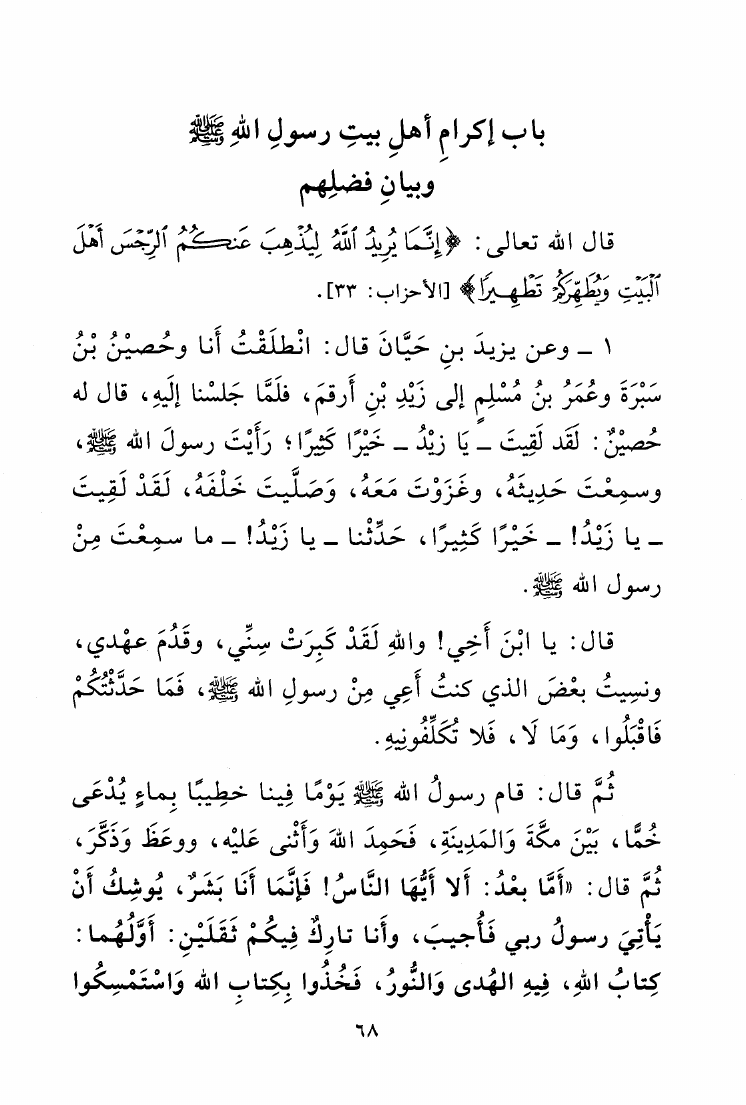 باب إكرامِ أهلِ بيتِ رسولِ اللهِ ﷺ
وبيانِ فضلِهم
قال الله تعالى: ﴿إِنَّمَا يُرِيدُ ٱللَّهُ لِيُذْهِبَ عَنكُمُ ٱلرِّجْسَ أَهْلَ
ٱلْبَيْتِ وَيُطَهِّرَكُمْ تَطْهِيرًا﴾ [الأحزاب: ٣٣].
١ ـ وعن يزيدَ بنِ حَيَّانَ قال: انْطلَقْتُ أنا وحُصيْنُ بْنُ
سَبْرَةَ وعُمَرُ بنُ مُسْلِمٍ إلى زَيْدِ بْنِ أَرقمَ، فلَمَّا جَلسْنا إليْهِ، قال له
حُصيْنٌ: لَقَد لَقِيتَ ـ يَا زيْدُ ـ خَيْرًا كَثِيرًا؛ رَأَيْتَ رسولَ الله ﷺ،
وسمِعْتَ حَدِيثَهُ، وغَزَوْتَ مَعَهُ، وَصَلَّيتَ خَلْفَهُ، لَقَدْ لَقِيتَ
ـ يا زَيْدُ! ـ خَيْرًا كَثِيرًا، حَدِّثْنا ـ يا زَيْدُ! ـ ما سمِعْتَ مِنْ
رسول الله ﷺ.
قال: يا ابْنَ أَخِي! واللهِ لَقَدْ كَبِرَتْ سِنِّي، وقَدُمَ عهْدي،
ونسِيتُ بعْضَ الذي كنتُ أَعِي مِنْ رسولِ الله ﷺ، فَمَا حَدَّثْتُكُمْ
فَاقْبَلُوا، وَمَا لَا، فَلا تُكَلِّفُونِيهِ.
ثُمَّ قال: قام رسولُ الله ﷺ يَوْمًا فِينا خطِيبًا بِماءٍ يُدْعَى
خُمًّا، بَيْنَ مكَّةَ وَالمَدِينَةِ، فَحَمِدَ اللهَ وَأَثْنى عَليْه، ووعظَ وَذَكَّرَ،
ثُمَّ قال: «أَمَّا بعْدُ: أَلا أَيُّهَا النَّاسُ! فَإِنَّمَا أَنَا بَشَرٌ، يُوشِكُ أَنْ
يَأْتِيَ رسولُ ربي فَأُجيبَ، وأَنا تارِكٌ فِيكُمْ ثَقَلَيْنِ: أوَّلُهُما:
كِتابُ اللهِ، فِيهِ الهُدى وَالنُّورُ، فَخُذُوا بِكِتابِ الله وَاسْتَمْسِكُوا
٦٨